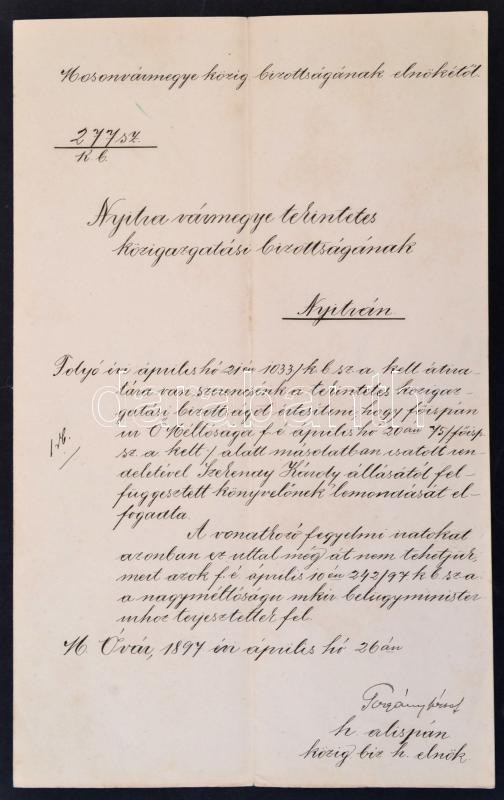 Mosonvármegye közig bizottságának elnökétől.
277 sz.
K b.
Nyitra vármegye tekintetes
közigazgatási bizottságának
Nyitván
Folyó évi április hó 21én 1033/k b sz a. kelt átira-
tára van szerencsénk a tekintetes közigaz-
gatási bizottságot értesíteni, hogy főispán
úr Ő Méltósága f é április hó 20án 75/főisp
sz. a kelt / alatt másolatban csatolt ren-
deletével Szekendy Károly állásától fel-
függesztett könyvelőnek lemondását el-
fogadta.
A vonatkozó fegyelmi iratokat
azonban ez uttal még át nem tehetjük,
mert azok f.é. április 10 én 242/97 k b sz a
a nagyméltóságu mkir belügyminister
úrhoz terjesztettek fel.
M Óvár, 1897 évi április hó 26án
h. alispán
közig biz h. elnök.
darabanth